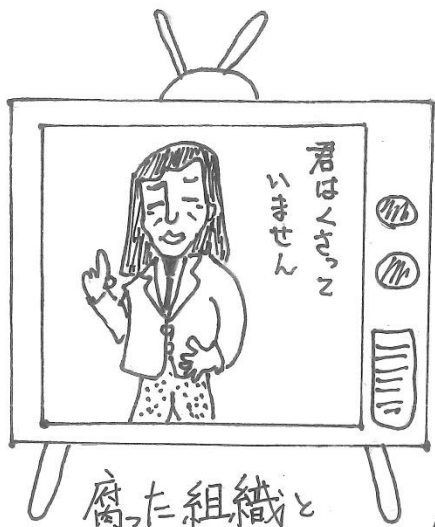 君はくさって
いません
腐った組織と